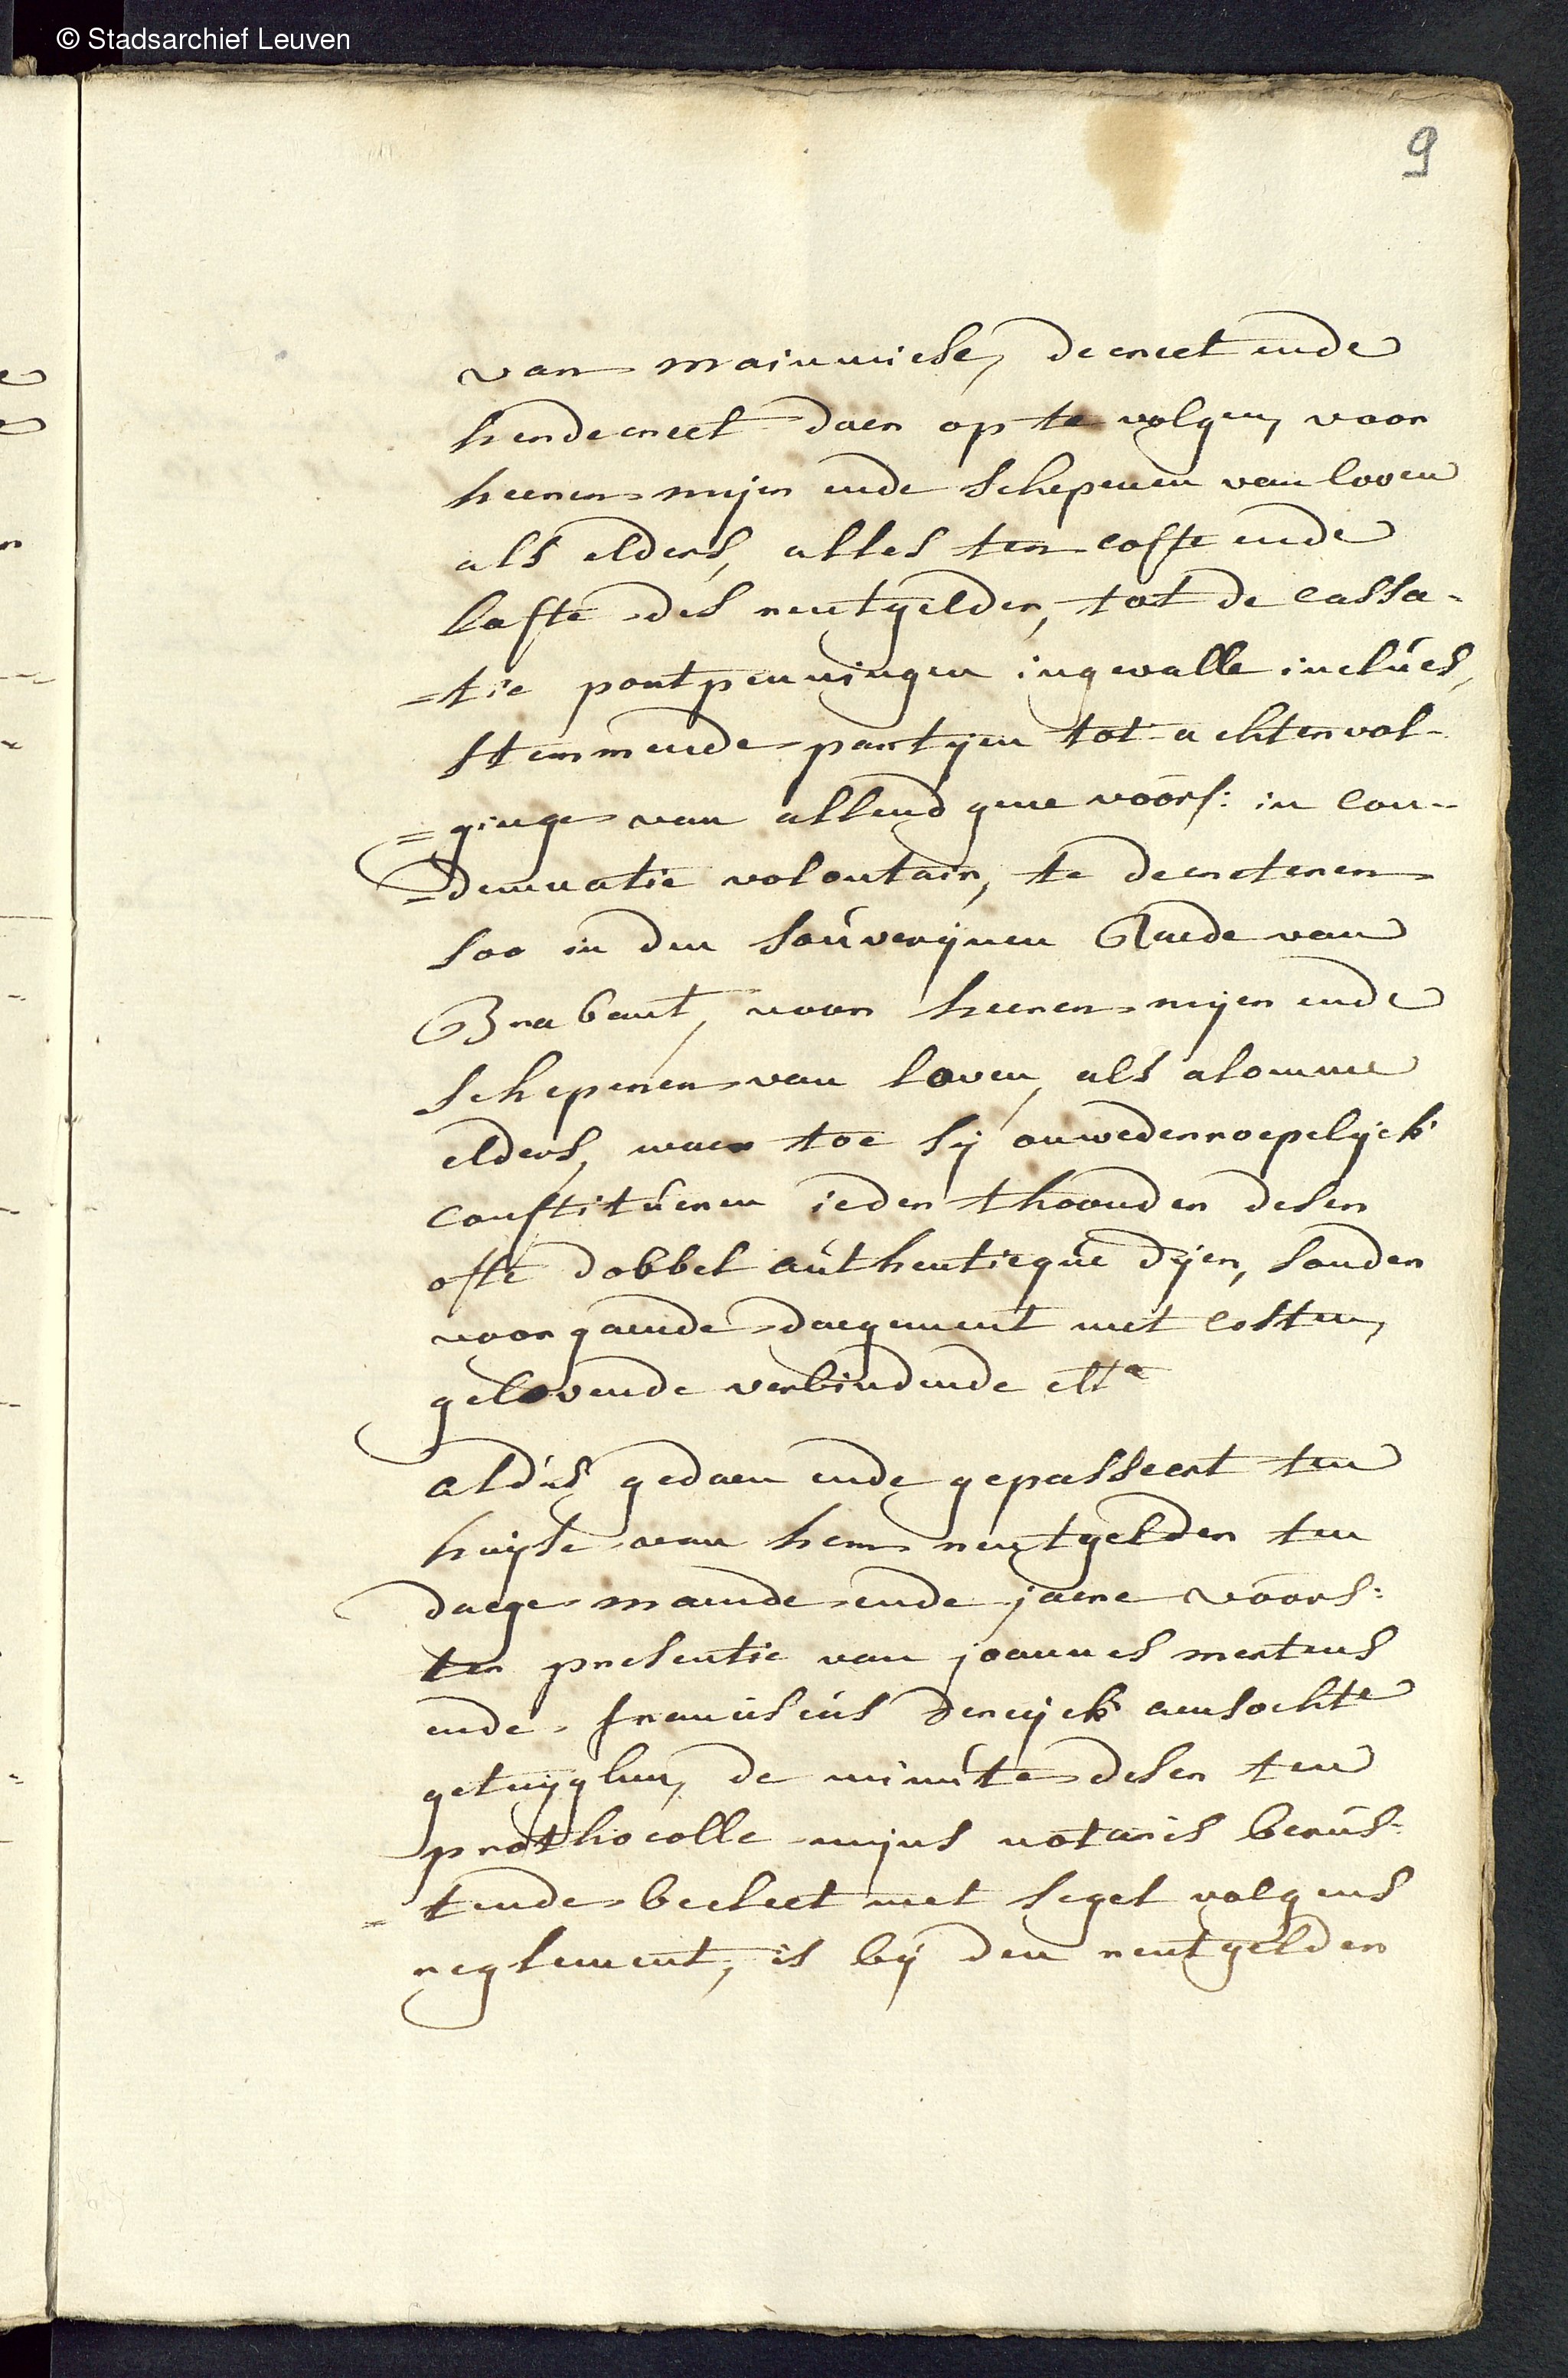 © Stadsarchief Leuven
9
van mainmiese, decreet ende
herdecreet daer op te volgen, voor
heeren meijer ende schepenen van loven
als elders, alles ten coste ende
laste des rentgelder, tot de cassa-
=tie pontpenningen ingevalle incluÿs,
stemmende partijen tot achtervol-
=ginge van allend gene voors: in con-
=demnatie volontair, te decreteren
soo in den souverijnen Raede van
Brabant, voor heeren meijer ende
schepenen van loven, als alomme
elders, waer toe sij onwederroepelijck
constitueren ieder thoonder deser
ofte dobbel authenticque dijer, sonder
voorgaende daegement met costen,
gelovende verbindende etta
aldus gedaen ende gepasseert ten
huijse van hem rentgelder ten
daege maende ende jaere voors:
ter presentie van joannes mertens
ende franciscus derijck aensochte
getuijghen, de minute deser ten
prothocolle mijns notaris berus-
=tende becleet met segel volgens
reglement, is bij den rentgelder